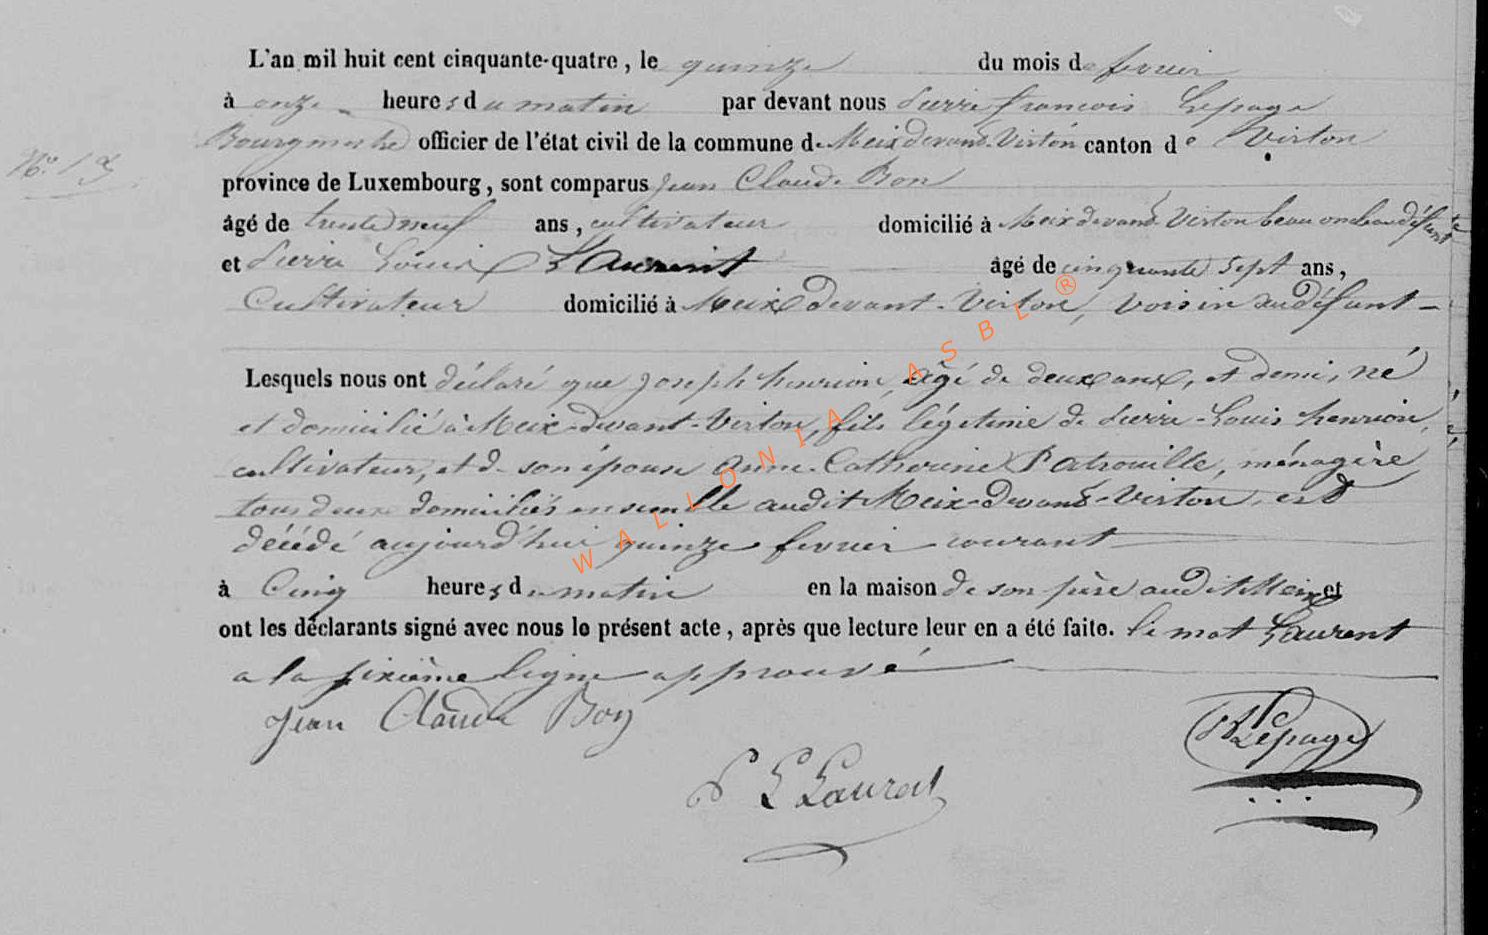 L'an mil huit cent cinquante-quatre, le quinze du mois de fevrier
à onze heures du matin par devant nous Pierre françois Lepage
N.° 13
Bourgmestre officier de l'état civil de la commune de Meix devant-Virton canton de Virton
province de Luxembourg, sont comparus Jean Claude Bon
âgé de trente neuf ans, cultivateur domicilié à Meix devant Virton beau oncle au défunt
et Pierre Louis Laurent âgé de cinquante sept ans,
Cultivateur domicilié à Meix devant-Virton, voisin au défunt
Lesquels nous ont déclaré que Joseph henrion, âgé de deux ans, et demi, né
et domicilié à Meix-devant-Virton, fils légitime de Pierre-Louis henrion,
cultivateur, et de son épouse Anne-Catherine Patrouille, ménagère,
tous deux domiciliés ensemble audit Meix-devant-Virton, est
décédé aujourd'hui quinze fevrier courant
à Cinq heures du matin en la maison de son père audit Meix et
ont les déclarants signé avec nous le présent acte, après que lecture leur en a été faite. le mot Laurent
a la sixième ligne approuvé
Jean Claude Bon
P L Laurent
Lepage
WALLONIA ASBL ®